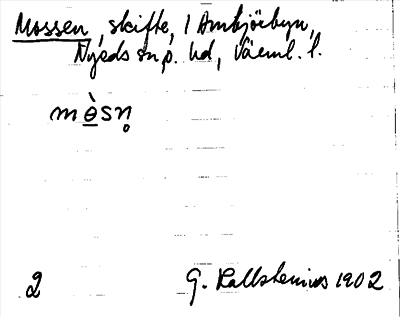 Mossen, skifte, 1 Ambjörbyn,
Nyeds sn, o. hd, Värml. l.
mè̲sn̥
2 G. Kallstenius 1902